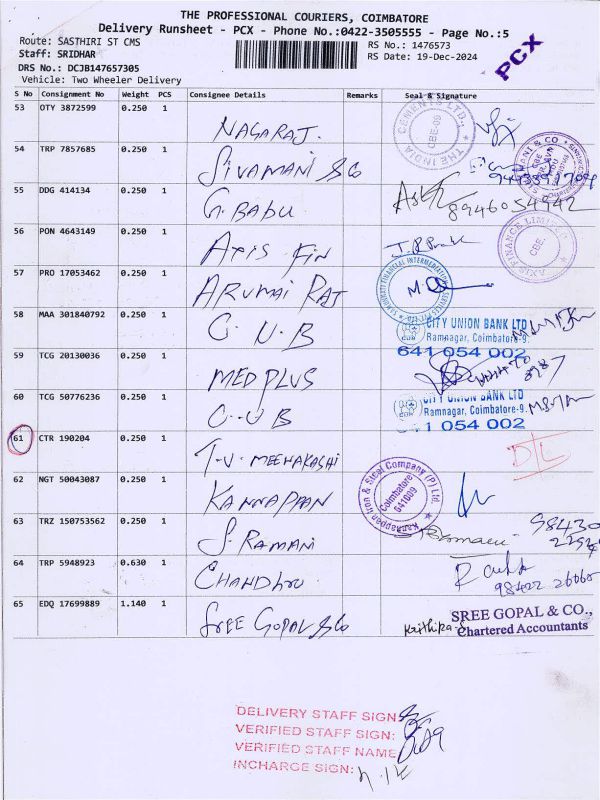 THE PROFESSIONAL COURIERS, COIMBATORE
Delivery Runsheet - PCX - Phone No.:0422-3505555 - Page No.:5
Route: SASTHIRI ST CMS
RS No.: 1476573
Staff: SRIDHAR
RS Date: 19-Dec-2024
DRS No.: DCJB147657305
Vehicle: Two Wheeler Delivery
PCX
S No Consignment No Weight PCS Consignee Details Remarks Seal & Signature
53 OTY 3872599 0.250 1 NAGARAJ.
THE INDIA CEMENTS LTD., CBE-09
54 TRP 7857685 0.250 1 SIVAMANI & Co
55 DDG 414134 0.250 1 G. BABU 8946054942
56 PON 4643149 0.250 1 AXIS FIN
AXIS FINANCE LIMITED CBE.
57 PRO 17053462 0.250 1 ARUMAI RAJ
58 MAA 301840792 0.250 1 C.U.B
CITY UNION BANK LTD
Ramnagar, Coimbatore-9.
641 054 002
59 TCG 20130036 0.250 1 MEDPLUS
60 TCG 50776236 0.250 1 C.U.B
CITY UNION BANK LTD
Ramnagar, Coimbatore-9.
641 054 002
61 CTR 190204 0.250 1 T.V. MEENAKASHI D/L
62 NGT 50043087 0.250 1 KANNAPPAN
Kannappan Iron & Steel Company (P) Ltd.
Coimbatore
641009
63 TRZ 150753562 0.250 1 S. RAMANI 98430
64 TRP 5948923 0.630 1 CHANDRU
98422 26060
65 EDQ 17699889 1.140 1 SREE GOPAL & Co
SREE GOPAL & CO.,
Chartered Accountants
DELIVERY STAFF SIGN:
VERIFIED STAFF SIGN:
VERIFIED STAFF NAME:
INCHARGE SIGN: